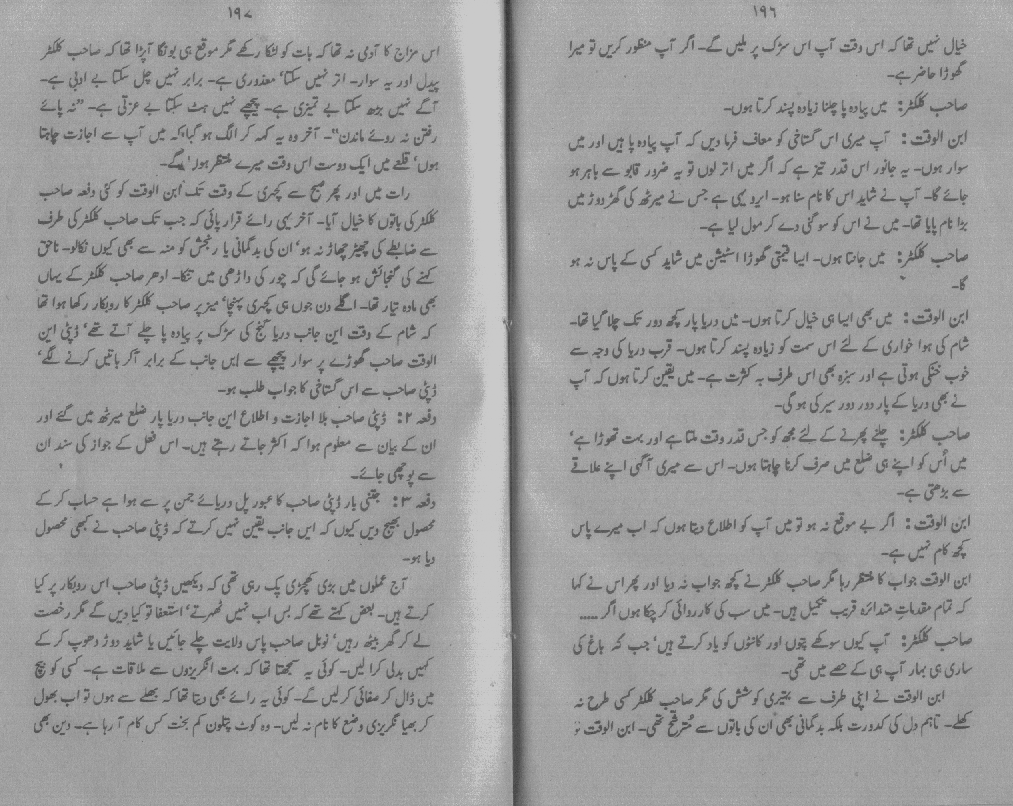 ۱۹۶
خیال نہیں تھا کہ اس وقت آپ اس سڑک پر ملیں گے۔ اگر آپ منظور کریں تو میرا
گھوڑا حاضر ہے۔
صاحب کلکٹر: میں پیادہ پا چلنا زیادہ پسند کرتا ہوں۔
ابن الوقت: آپ میری اس گستاخی کو معاف فرما دیں کہ آپ پیادہ پا ہیں اور میں
سوار ہوں۔ یہ جانور اس قدر تیز ہے کہ اگر میں اتر لوں تو یہ ضرور قابو سے باہر ہو
جائے گا۔ آپ نے شاید اس کا نام سنا ہو۔ ایرو یہی ہے جس نے میرٹھ کی گھڑ دوڑ میں
بڑا نام پایا تھا۔ میں نے اس کو سو گنی دے کر مول لیا ہے۔
صاحب کلکٹر: میں جانتا ہوں۔ ایسا قیمتی گھوڑا اسٹیشن میں شاید کسی کے پاس نہ ہو
گا۔
ابن الوقت: میں بھی ایسا ہی خیال کرتا ہوں۔ میں دریا پار کچھ دور تک چلا گیا تھا۔
شام کی ہوا خواری کے لئے اس سمت کو زیادہ پسند کرتا ہوں۔ قرب دریا کی وجہ سے
خوب خنکی ہوتی ہے اور سبزہ بھی اس طرف بہ کثرت ہے۔ میں یقین کرتا ہوں کہ آپ
نے بھی دریا کے پار دور دور سیر کی ہو گی۔
صاحب کلکٹر: چلنے پھرنے کے لئے مجھ کو جس قدر وقت ملتا ہے اور بہت تھوڑا ہے،
میں اُس کو اپنے ہی ضلع میں صرف کرنا چاہتا ہوں۔ اس سے میری آگہی اپنے علاقے
سے بڑھتی ہے۔
ابن الوقت: اگر بے موقع نہ ہو تو میں آپ کو اطلاع دیتا ہوں کہ اب میرے پاس
کچھ کام نہیں ہے۔
ابن الوقت جواب کا منتظر رہا مگر صاحب کلکٹر نے کچھ جواب نہ دیا اور پھر اس نے کہا
کہ تمام مقدمات متدائرہ قریب تکمیل ہیں۔ میں سب کی کارروائی کر چکا ہوں اگر .....
صاحب کلکٹر: آپ کیوں سوکھے پتوں اور کانٹوں کو یاد کرتے ہیں، جب کہ باغ کی
ساری ہی بہار آپ ہی کے حصے میں تھی۔
ابن الوقت نے اپنی طرف سے بہتیری کوشش کی مگر صاحب کلکٹر کسی طرح نہ
کھلے۔ تاہم دل کی کدورت بلکہ بدگمانی بھی ان کی باتوں سے مُترشح تھی۔ ابن الوقت تو
۱۹۷
اس مزاج کا آدمی نہ تھا کہ بات کو لٹکا رکھے مگر موقع ہی بونگا آ پڑا تھا کہ صاحب کلکٹر
پیدل اور یہ سوار۔ اتر نہیں سکتا، معذوری ہے۔ برابر نہیں چل سکتا بے ادبی ہے۔
آگے نہیں بڑھ سکتا بے تمیزی ہے۔ پیچھے نہیں ہٹ سکتا بے عزتی ہے۔ "نہ پائے
رفتن نہ روئے ماندن"۔ آخر وہ یہ کہہ کر الگ ہو گیا، کہ میں آپ سے اجازت چاہتا
ہوں، قلعے میں ایک دوست اس وقت میرے منتظر ہوں گے۔
رات میں اور پھر صبح سے کچہری کے وقت تک ابن الوقت کو کئی دفعہ صاحب
کلکٹر کی باتوں کا خیال آیا۔ آخر یہی رائے قرار پائی کہ جب تک صاحب کلکٹر کی طرف
سے ضابطے کی چھیڑ چھاڑ نہ ہو، ان کی بدگمانی یا رنجش کو منہ سے بھی کیوں نکالو۔ ناحق
کہنے کی گنجائش ہو جائے گی کہ چور کی داڑھی میں تنکا۔ ادھر صاحب کلکٹر کے یہاں
بھی مادہ تیار تھا۔ اگلے دن جوں ہی کچہری پہنچا، میز پر صاحب کلکٹر کا روبکار رکھا ہوا تھا
کہ شام کے وقت این جانب دریا گنج کی سڑک پر پیادہ پا چلے آتے تھے، ڈپٹی ابن
الوقت صاحب گھوڑے پر سوار پیچھے سے ایں جانب کے برابر آ کر باتیں کرنے لگے،
ڈپٹی صاحب سے اس گستاخی کا جواب طلب ہو۔
دفعہ ۲: ڈپٹی صاحب بلا اجازت و اطلاع این جانب دریا پار ضلع میرٹھ میں گئے اور
ان کے بیان سے معلوم ہوا کہ اکثر جاتے رہتے ہیں۔ اس فعل کے جواز کی سند ان
سے پوچھی جائے۔
دفعہ ۳: جتنی بار ڈپٹی صاحب کا عبور پل دریائے جمن پر سے ہوا ہے حساب کر کے
محصول بھیج دیں کیوں کہ ایں جانب یقین نہیں کرتے کہ ڈپٹی صاحب نے کبھی محصول
دیا ہو۔
آج عملوں میں بڑی کھچڑی پک رہی تھی کہ دیکھیں ڈپٹی صاحب اس روبکار پر کیا
کرتے ہیں۔ بعض کہتے تھے کہ بس اب نہیں ٹھہرتے، استعفا تو کیا دیں گے مگر رخصت
لے کر گھر بیٹھ رہیں، نوبل صاحب پاس ولایت چلے جائیں یا شاید دوڑ دھوپ کر کے
کہیں بدلی کرا لیں۔ کوئی یہ سمجھتا تھا کہ بہت انگریزوں سے ملاقات ہے۔ کسی کو بیچ
میں ڈال کر صفائی کر لیں گے۔ کوئی یہ رائے بھی دیتا تھا کہ بھلے سے ہوں تو اب بھول
کر بھی انگریزی وضع کا نام نہ لیں۔ وہ کوٹ پتلون کم بخت کس کام آ رہا ہے۔ دین بھی